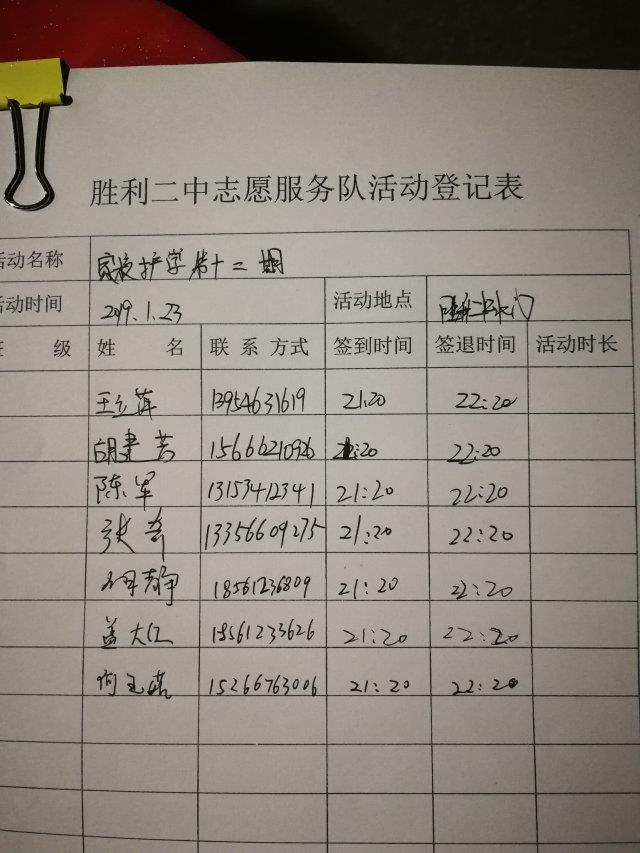 胜利二中志愿服务队活动登记表
活动名称 家校护学第十二期
活动时间 2019.1.23 活动地点 二中大门
班 级 姓 名 联系方式 签到时间 签退时间 活动时长
王立萍 13954631619 21:20 22:20
胡建芳 15666210926 21:20 22:20
陈军 13153412341 21:20 22:20
张奇 13356609275 21:20 22:20
静 18561236809 21:20 22:20
盖大江 18561233626 21:20 22:20
何玉 15266763006 21:20 22:20